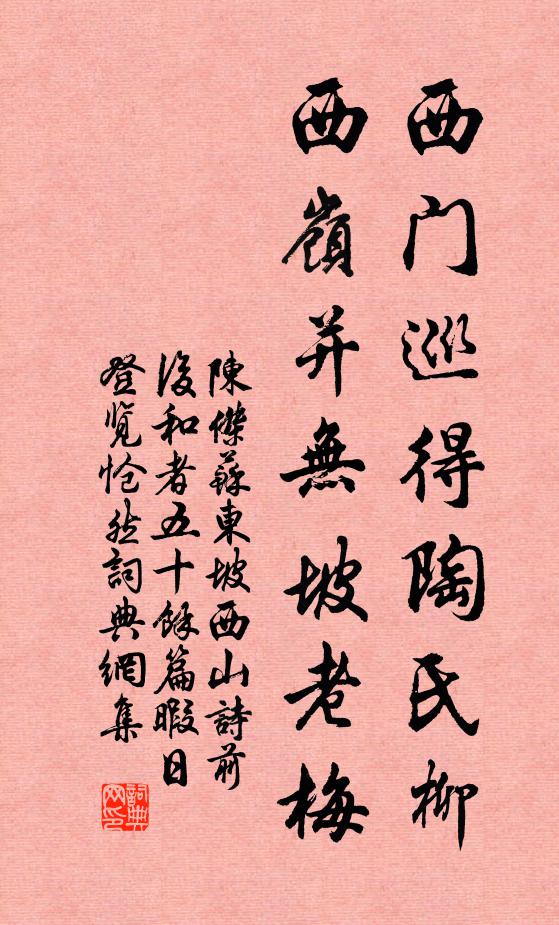 西门巡得陶氏柳
西嶺并無坡老梅
陳傑蘇東坡西山詩前
後和者五十餘篇暇日
登覽愴然詞典網集
詞典
网印